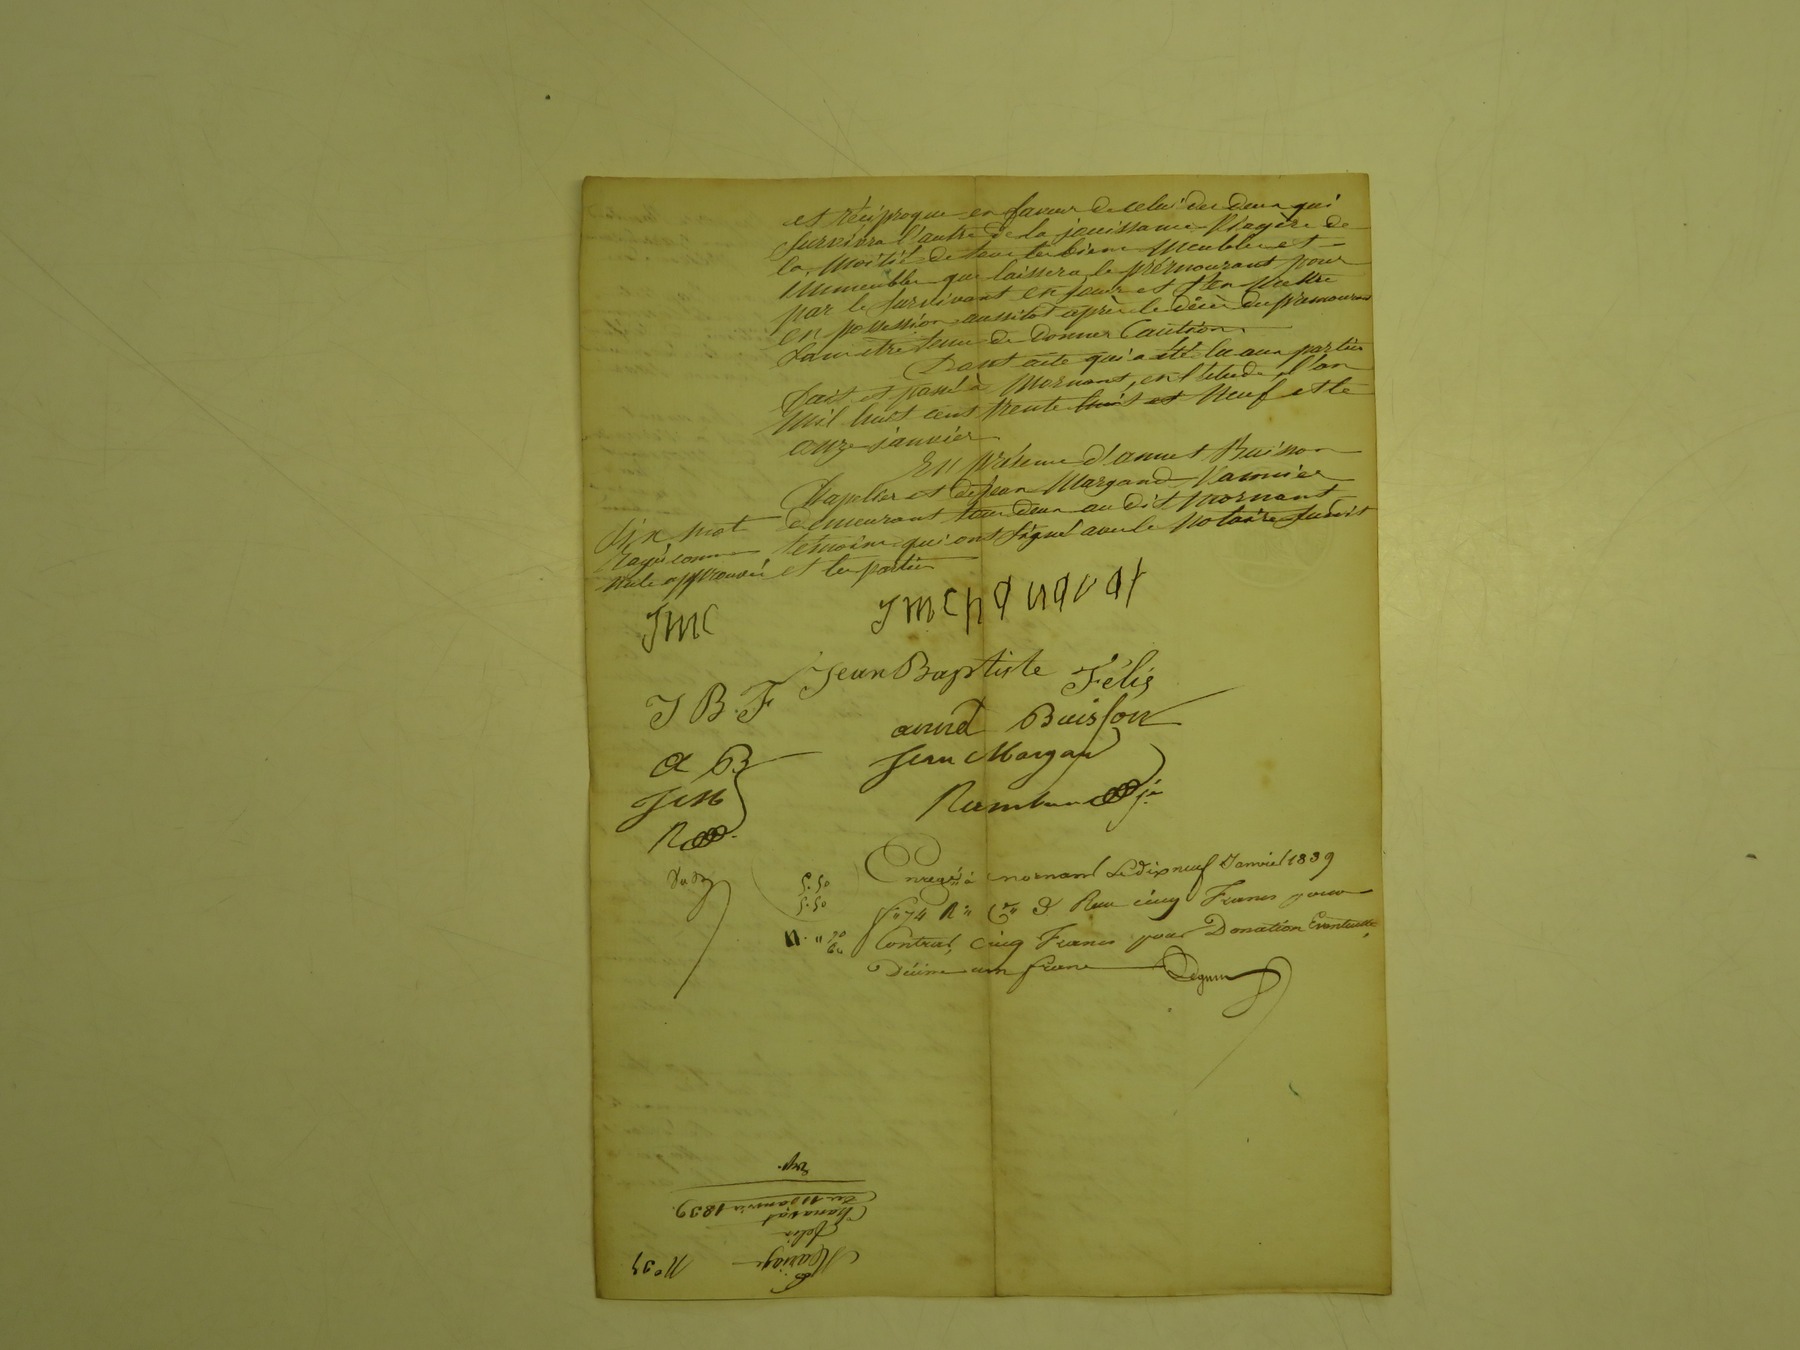 et réciproque en faveur de celui des deux qui
survivra l'autre de la jouissance Viagère de
la Moitié de tous les biens Meubles et
Immeubles que laissera le prémourant pour
par le Survivant en jouir et s'en Mettre
en possession aussitot après le décès du prémourant
Sans être tenu de donner Caution
Dont acte qui a été lu aux parties
fait et passé à Mornant, en l'étude, l'an
Mil huit cent trente huit et Neuf et le
onze janvier
En présence d'annet Buisson
Chapelier et de Jean Margand Vannier
demeurant tous deux au dit Mornant
témoins qui ont Signé avec le Notaire Susdit
et les parties
Dix mot
Rayés comme
Nuls approuvés
JMC
JMChanavat
Jean Baptiste Félis
J B. F
annet Buisson
a B
Jean Margan
N° 
Enregistré à mornant Le dix neuf Janvier 1839
f° 74 R° Cse 3 Reçu cinq Francs pour
Contrat, cinq Francs pour Donation Eventuelle
Décime un franc
5.50
5.50
Mariage
félis
Chanavat
du 11 Janvier 1839.
Exp.